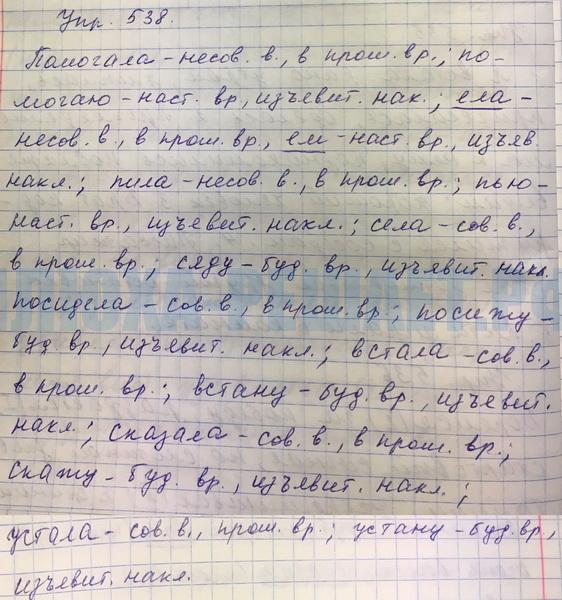 Упр. 538.
Помогала - несов. в., в прош. вр.; по-
могаю - наст. вр., изъевит. нак.; ела -
несов. в., в прош. вр., ем - наст вр., изъяв.
накл.; пила - несов. в., в прош. вр.; пью -
наст. вр., изъевит. накл.; села - сов. в.,
в прош. вр.; сяду - буд. вр., изъявит. накл.
посидела - сов. в., в прош. вр.; посижу -
буд. вр., изъявит. накл.; встала - сов. в.,
в прош. вр.; встану - буд. вр., изъевит.
накл.; сказала - сов. в., в прош. вр.;
скажу - буд. вр., изъявит. накл.;
устала - сов. в., прош. вр.; устану - буд. вр.,
изъевит. накл.